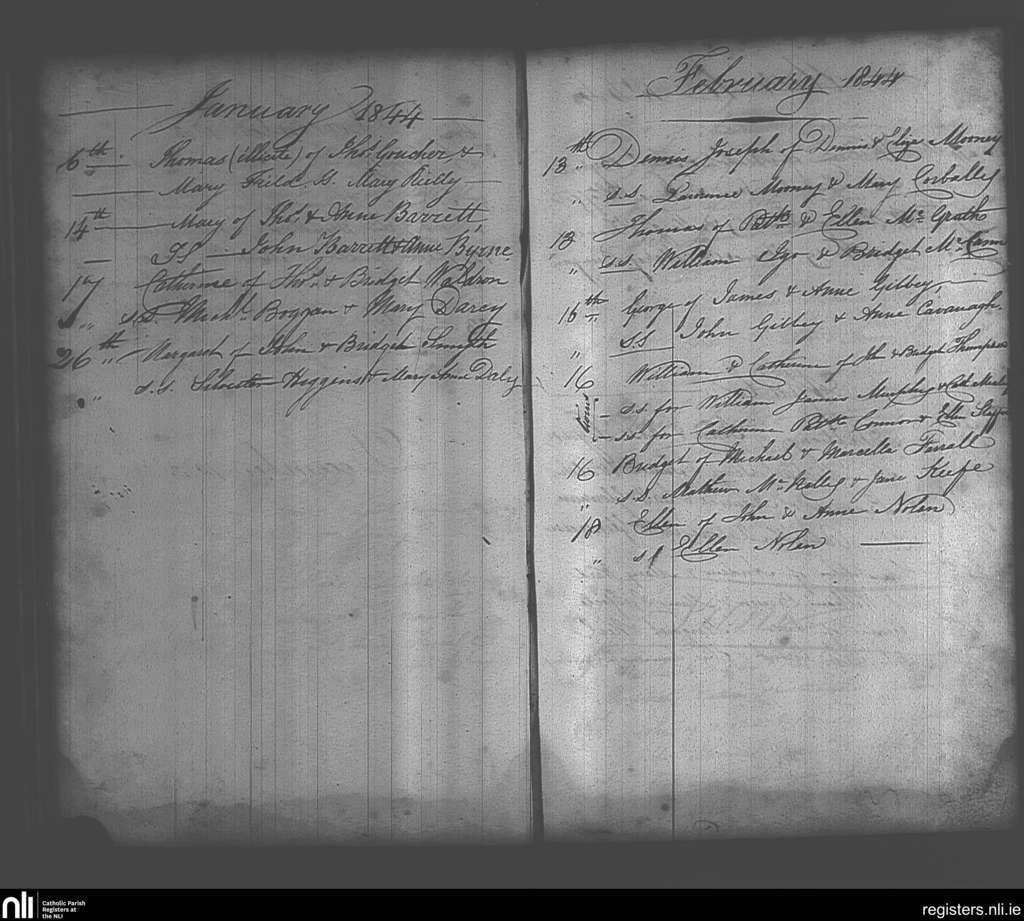 January 1844
6th Thomas (illicite) of Thos. Croucher &
Mary Field G. Mary Reilly
14th Mary of Thos. & Anne Barrett,
SS John Barrett & Anne Byrne
17 Catherine of Thos. & Bridget Waldron
" s.s. Michl. Boggan & Mary Darcy
26th Margaret of John & Bridget Smyth
" s.s. Silvester Higgins & Mary Anne Daly
February 1844
13th Dennis Joseph of Dennis & Eliza Mooney
" s.s. Laurence Mooney & Mary Corbally
13 Thomas of Pattk & Ellen Mc Grath
" s.s. William & Bridget Mc Cann
15th George of James & Anne Gilbey,
" S.S John Gilbey & Anne Cavanagh.
16 William & Catherine of Jn & Bridget Thompson
twins
s.s. for William James Murphy & Cath
s.s. for Catherine Pattk Connor & Ellen
16 Bridget of Michael & Marcella Farrall
" s.s. Mathew Mc Nally & Jane Keefe
18 Ellen of John & Anne Nolan
" s.s Ellen Nolan
nli
Catholic Parish
Registers at
the NLI
registers.nli.ie